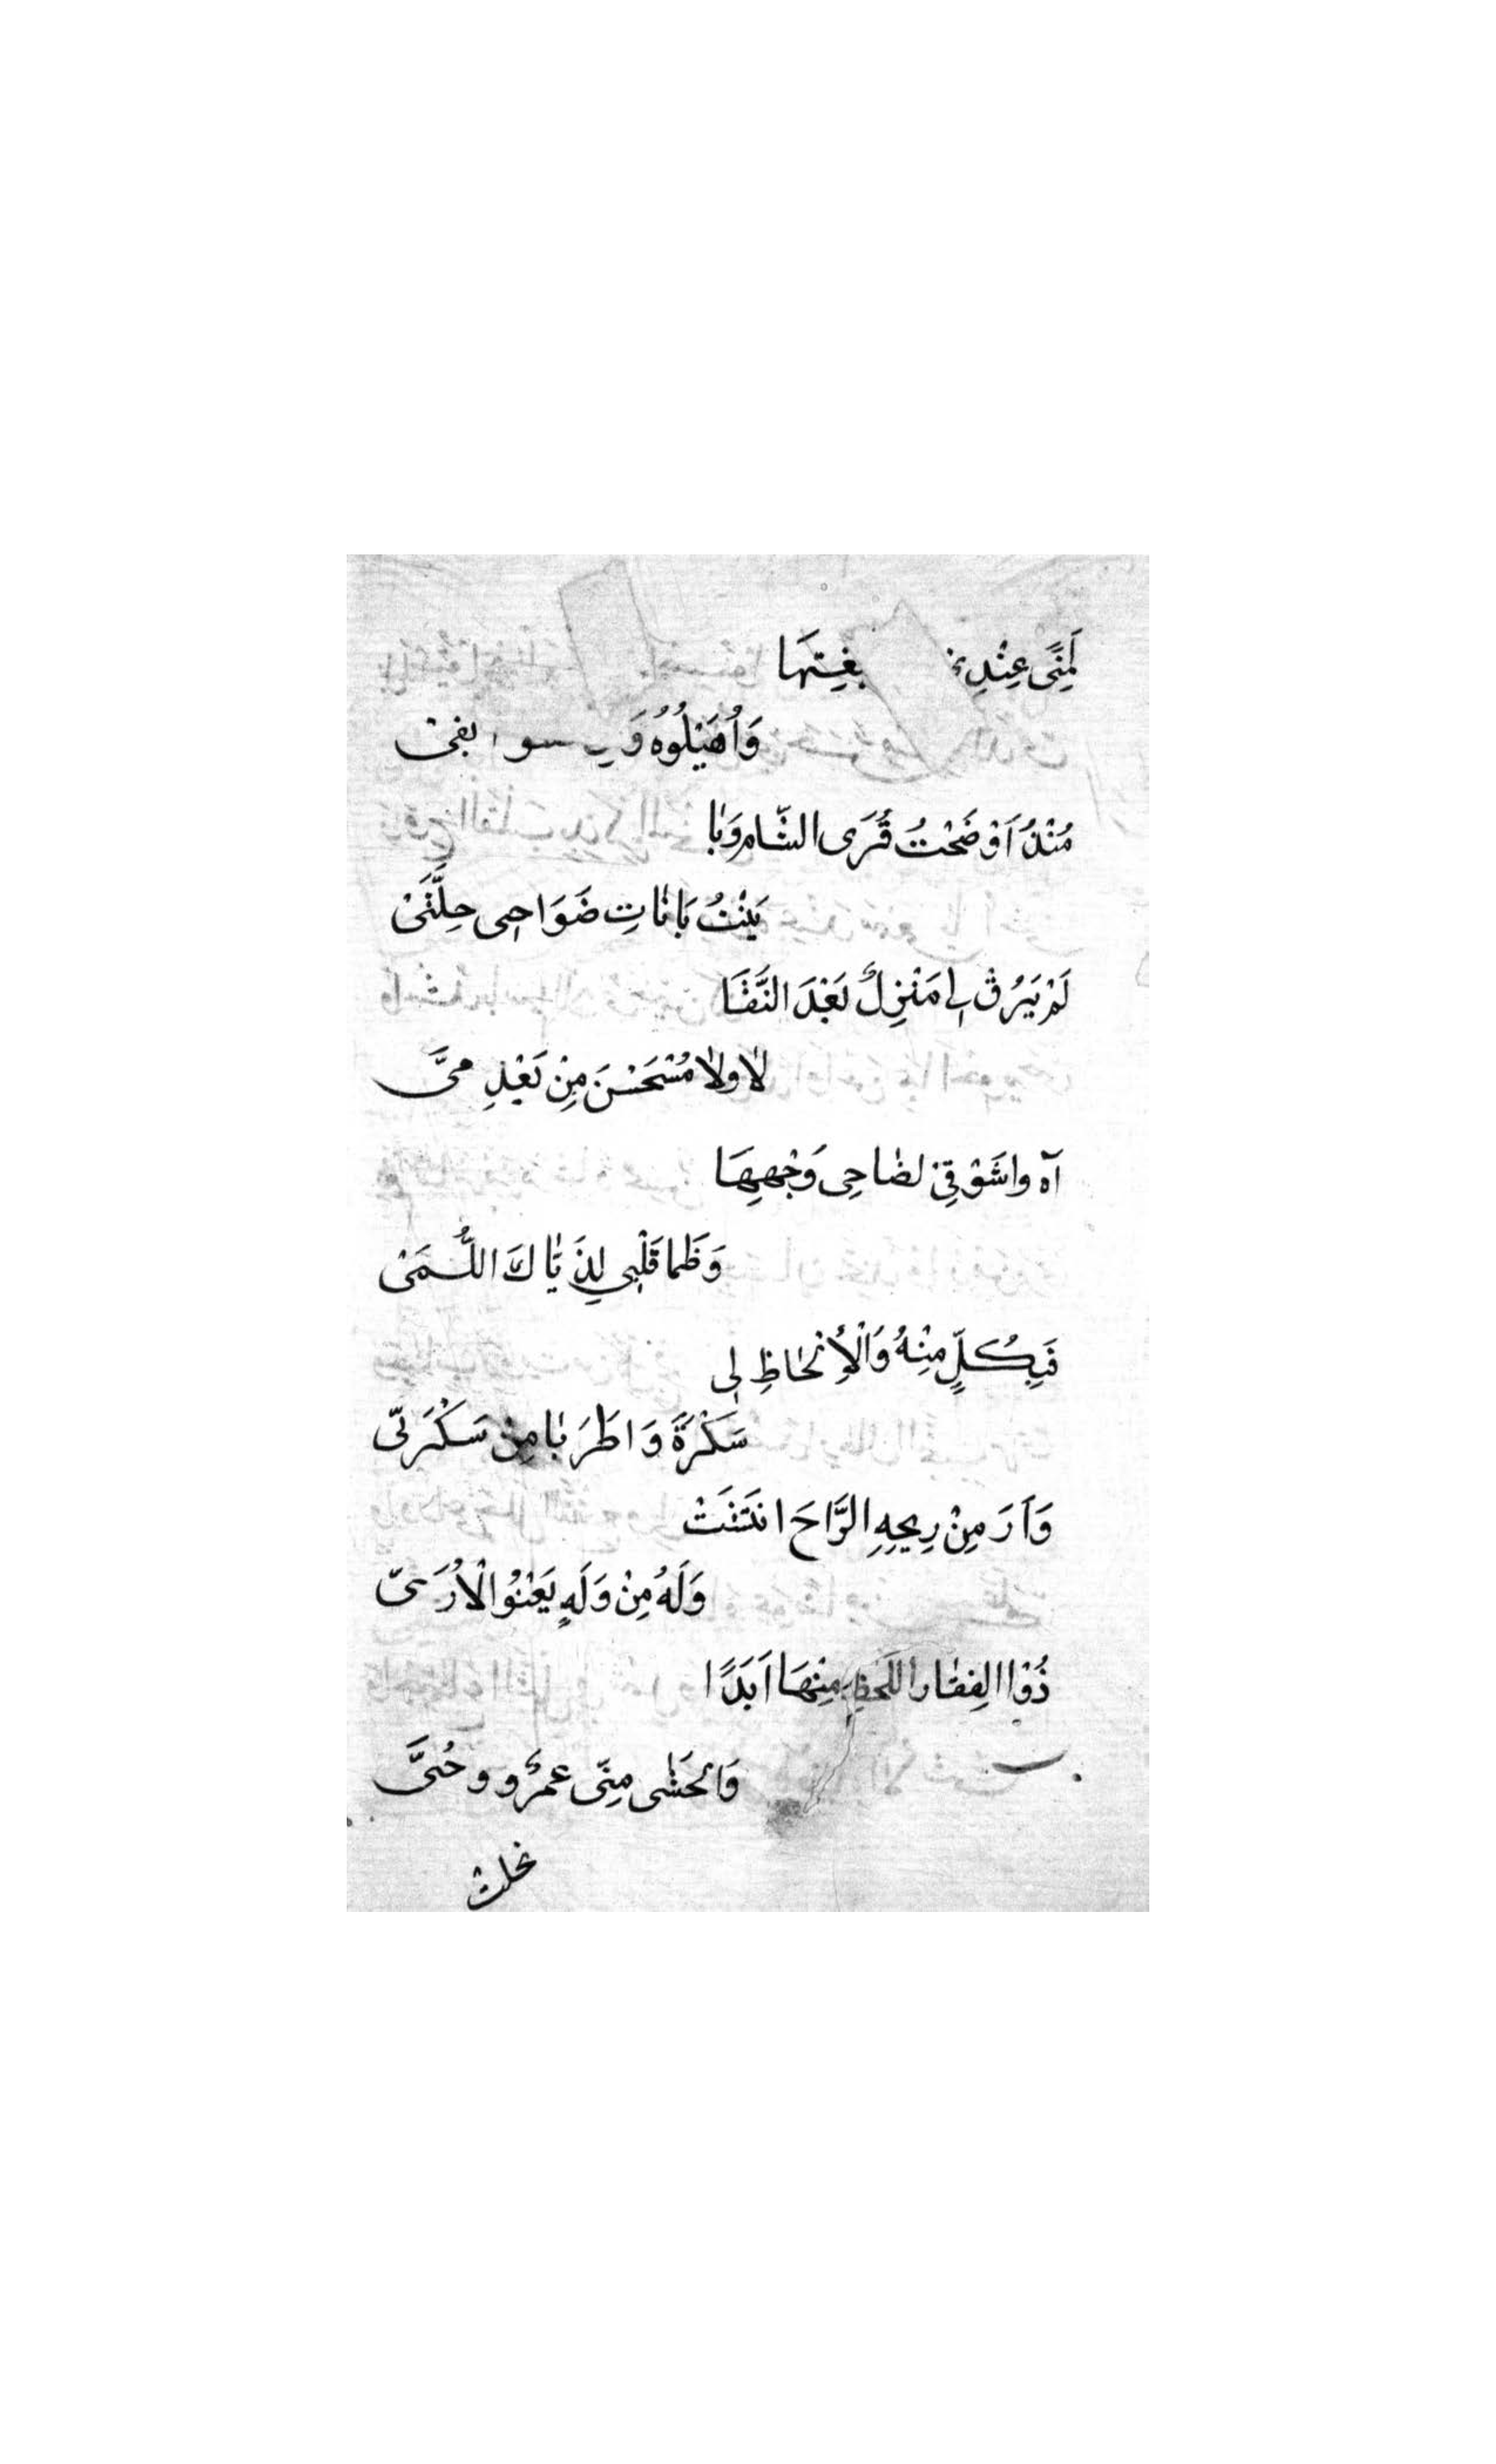 لَمِنًى عِنْدِي بغيتها
وَاُهَيْلُوهُ وَ
مُنْذُ اَوْضَحْتُ قُرَى الشّامِ وَبا
يَنْتُ بَانَاتِ ضَوَاحِى حِلَّتَىْ
لَمْ يَرُقْ لِى مَنْزِلٌ بَعْدَ النَّقَا
لا ولا مُسْتَحْسَنٌ مِنْ بَعْدِ مَىَّ
آه واشَوْقِى لضاحِى وَجْهِهَا
وَظَما قَلْبِى لِذَيّاكَ اللُّمَىْ
فَبِكُلٍّ مِنْهُ وَالْاَلْحاظِ لِى
سَكْرَةً وَاطَرَبا مِنْ سَكْرَتَىّ
وَاَرَ مِنْ رِيحِهِ الرَّاحَ انتَشَتْ
وَلَهُ مِنْ وَلَهٍ يَعْنُوا الْاُرَىّ
ذُوْا الفِقار اللَحْظِ مِنْهَا اَبَدًا
وَالحَشٰى مِنِّى عمرٌو وحُيَىَّ
نحلت